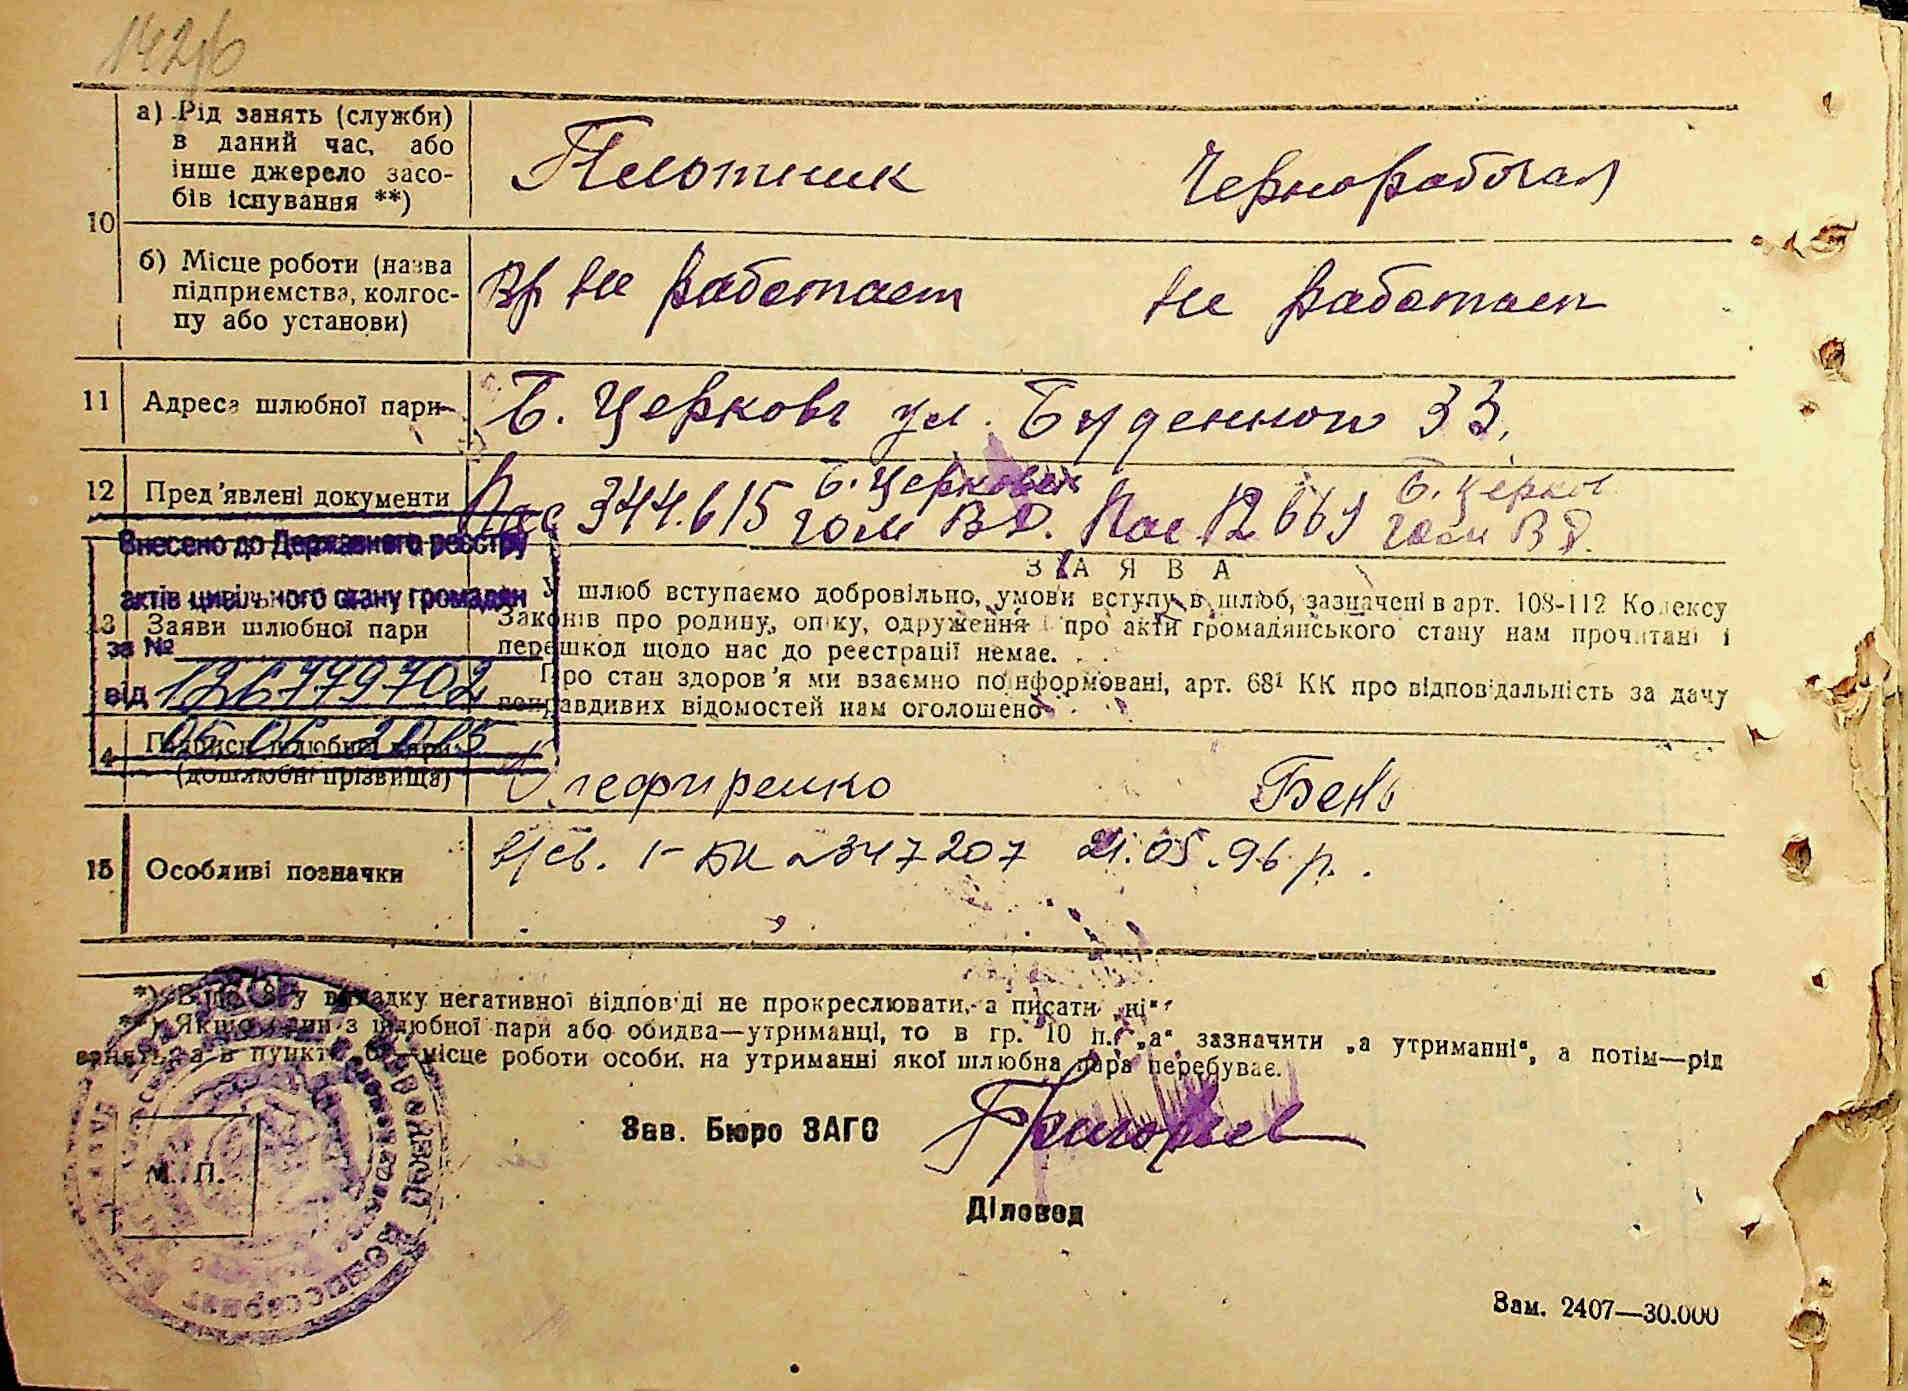 а) Рід занять (служби)
в даний час, або
інше джерело засо-
бів існування **)
Плотник
Чернорабочая
10
б) Місце роботи (назва
підприємства, колгос-
пу або установи)
Вр не работает
не работает
11
Адреса шлюбної пари
Б. Церковь ул. Буденного 33.
12
Пред'явлені документи
Пас 344.615 Б. Церковск
гом ВД. Пас 12 669 Б. Церков
гом ВД.
Внесено до Державного реєстру
актів цивільного стану громадян
за №
126779702
від
05 06 2015
13
Заяви шлюбної пари
ЗАЯВА
У шлюб вступаємо добровільно, умови вступу в шлюб, зазначені в арт. 108-112 Кодексу
Законів про родину, опіку, одруження і про акти громадянського стану нам прочитані і
перешкод щодо нас до реєстрації немає.
Про стан здоров'я ми взаємно поінформовані, арт. 68¹ КК про відповідальність за дачу
неправдивих відомостей нам оголошено
14
Підписи шлюбної пари
(дошлюбні прізвища)
Олефиренко
Бень
15
Особливі позначки
І-БК № 347207 21.05.96 р.
*) В у випадку негативної відповіді не прокреслювати, а писати „ні“
**) Якщо один з шлюбної пари або обидва—утриманці, то в гр. 10 п. „а“ зазначити „а утриманні“, а потім—рід
занять, а в пункті „б“—місце роботи особи, на утриманні якої шлюбна пара перебуває.
М. П.
Зав. Бюро ЗАГС
Діловод
Зам. 2407—30.000